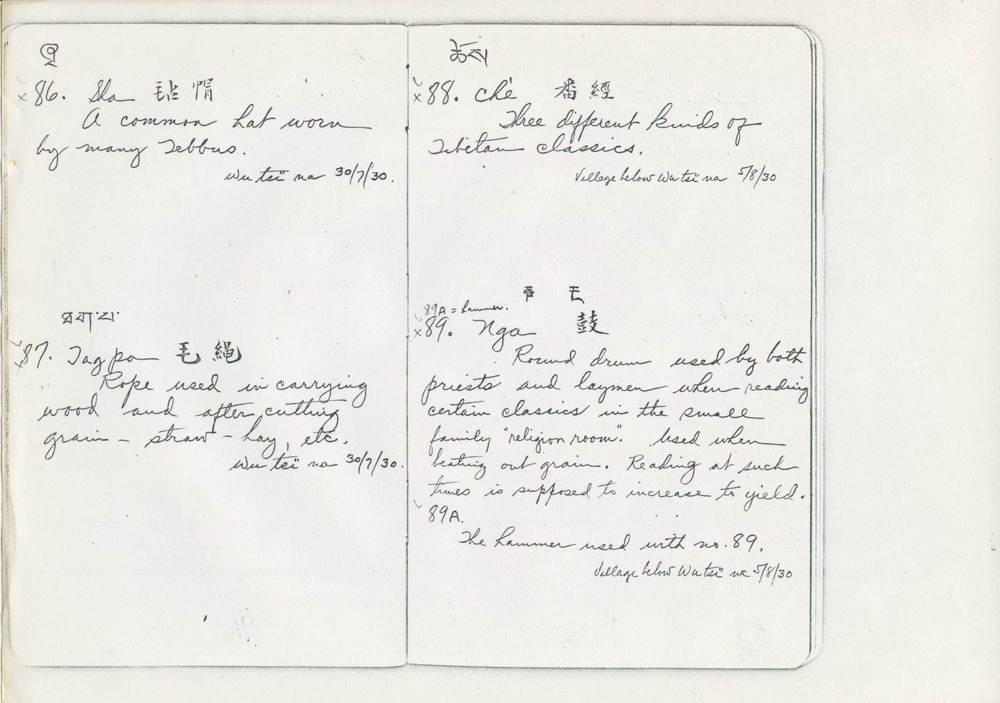 ཞྭ
x 86. Sha 毡帽
A common hat worn
by many Tebbus.
Wu tsï na 30/7/30.
ཐག་པ་
x 87. Tagpa 毛繩
Rope used in carrying
wood and after cutting
grain - straw - hay, etc.
Wu tsï na 30/7/30.
x 88. Chè 番經
Three different kinds of
Tibetan classics.
Village below Wu tsï na 5/8/30
89A = hammer.
x 89. Nga 鼓
Round drum used by both
priests and laymen when reading
certain classics in the small
family "religion room". Used when
beating out grain. Reading at such
times is supposed to increase the yield.
89A.
The hammer used with no. 89.
Village below Wu tsï na 5/8/30